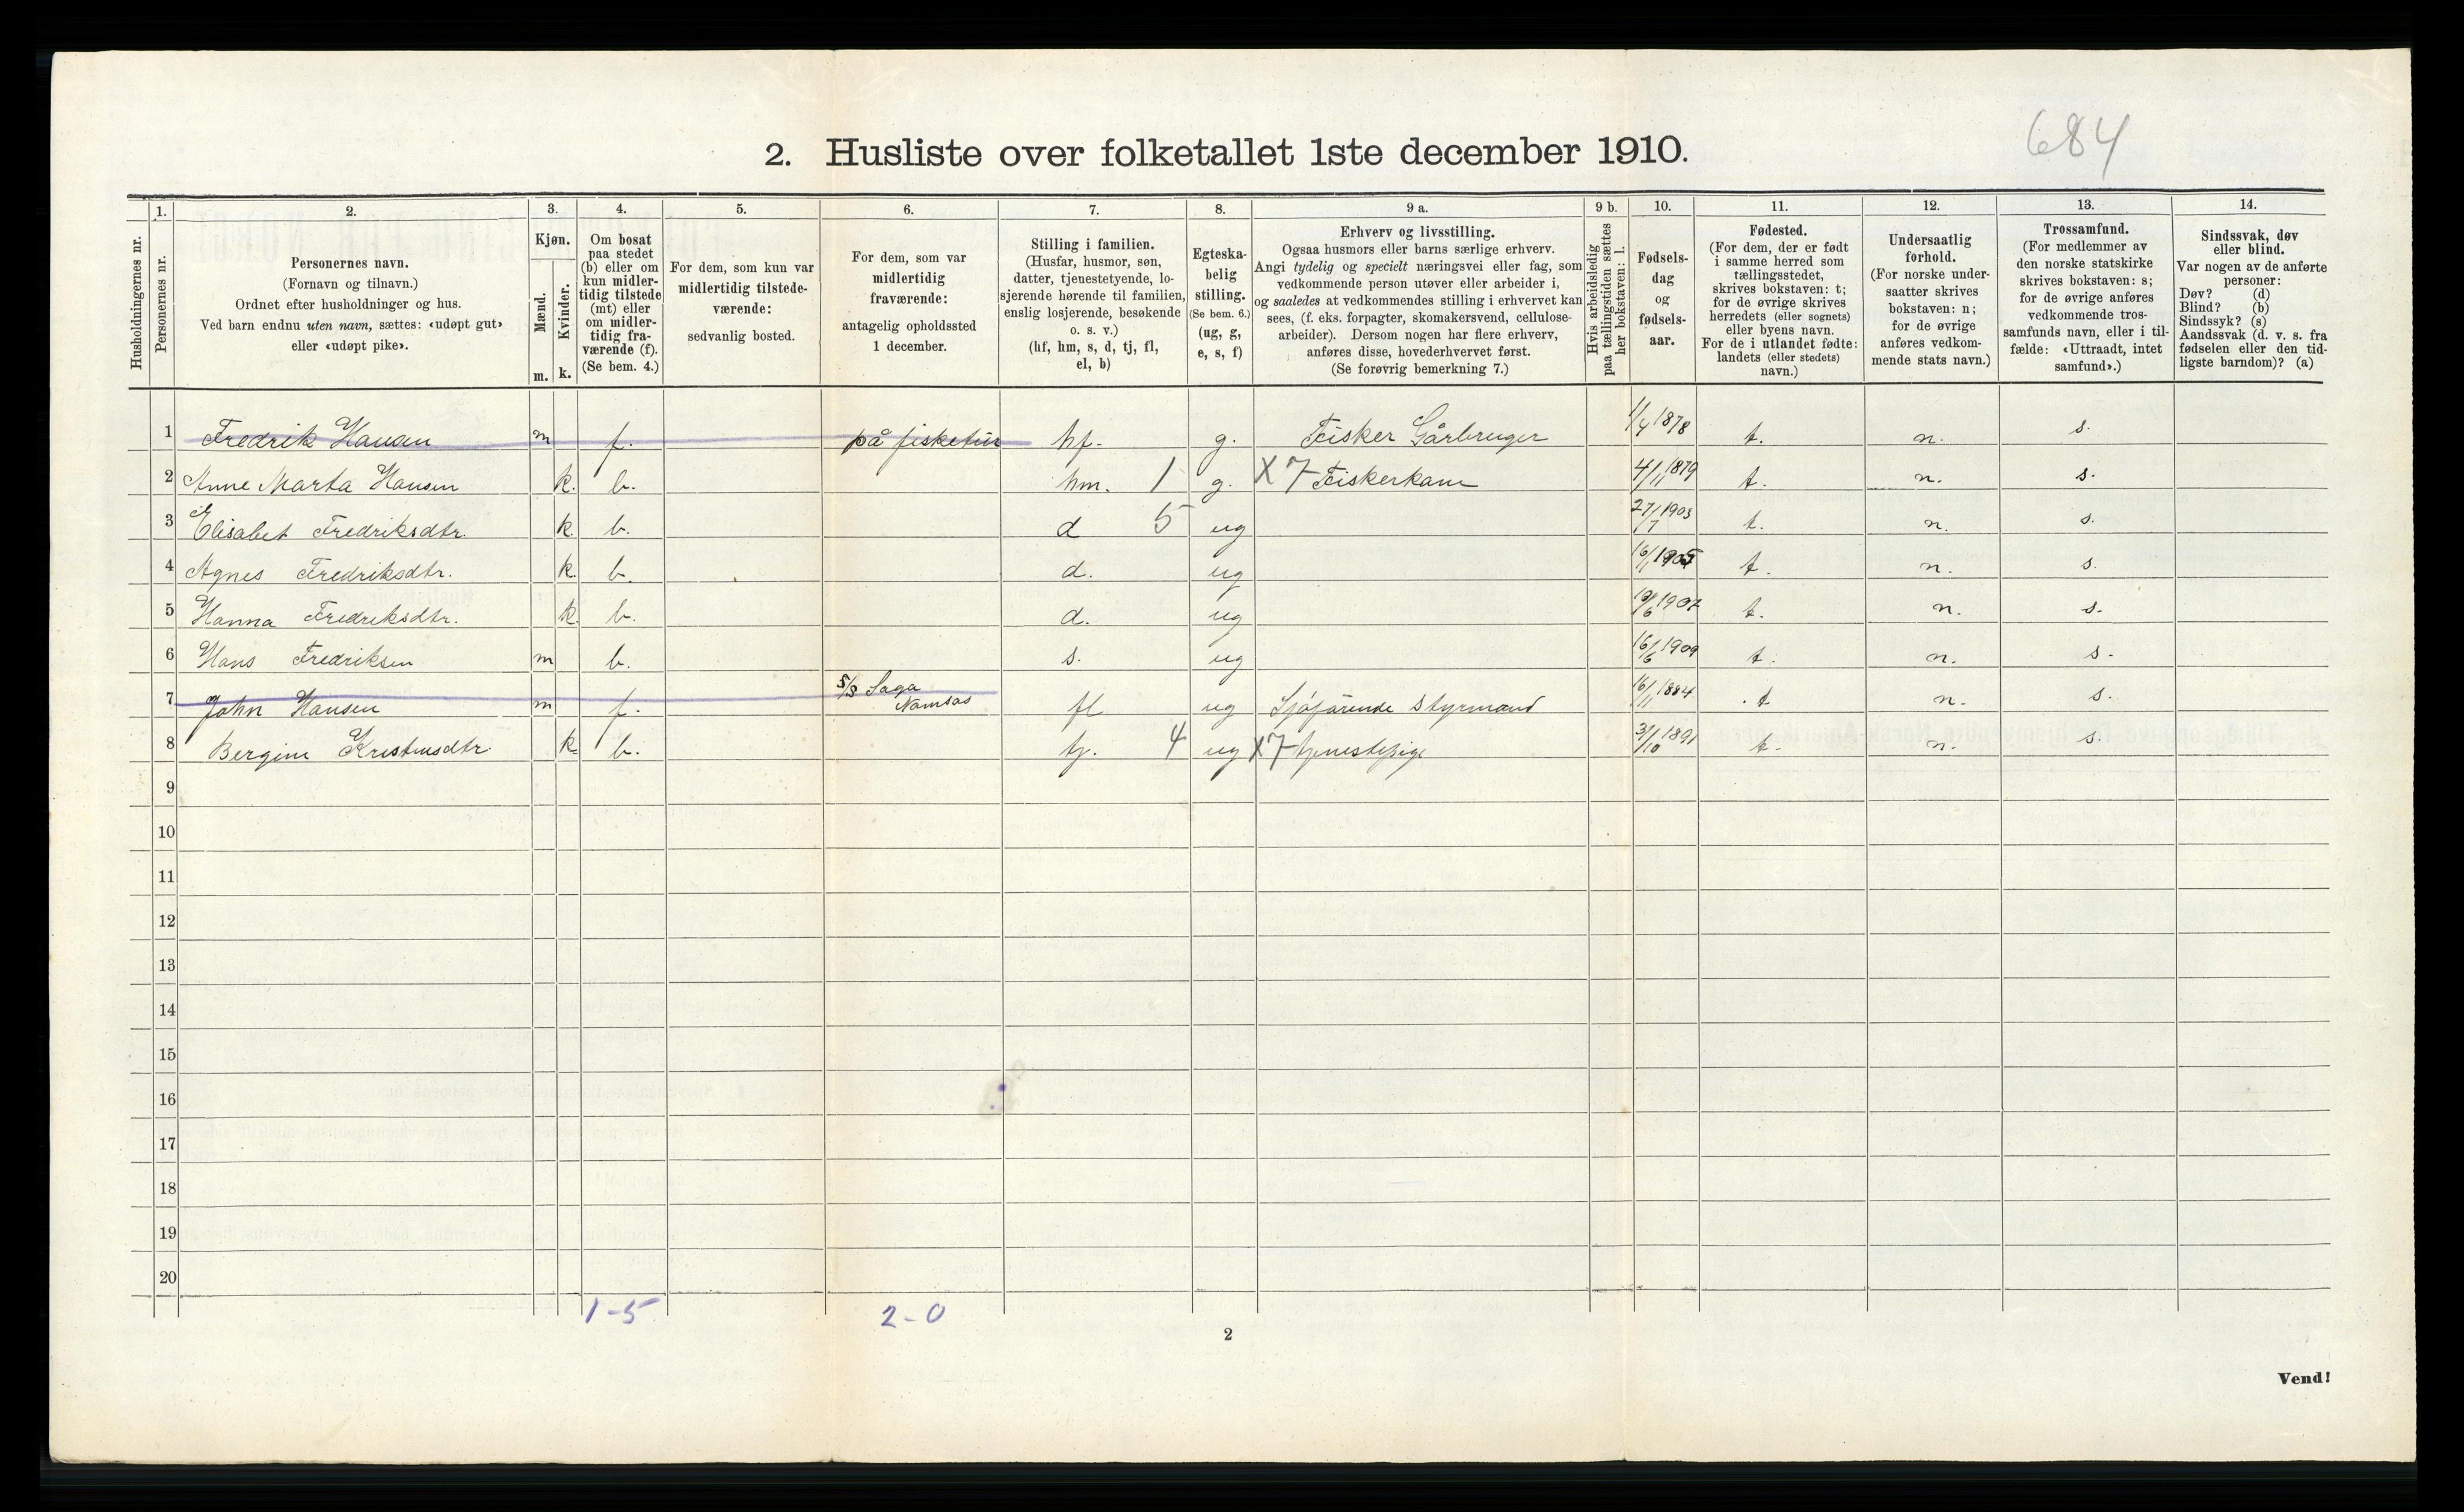 684
2. Husliste over folketallet 1ste december 1910.
Husholdningernes nr.
1.
Personernes nr.
2.
Personernes navn.
(Fornavn og tilnavn.)
Ordnet efter husholdninger og hus.
Ved barn endnu uten navn, sættes: «udøpt gut»
eller «udøpt pike».
3.
Kjøn.
Mænd.
Kvinder.
m. k.
4.
Om bosat
paa stedet
(b) eller om
kun midler-
tidig tilstede
(mt) eller
om midler-
tidig fra-
værende (f).
(Se bem. 4.)
5.
For dem, som kun var
midlertidig tilstede-
værende:
sedvanlig bosted.
6.
For dem, som var
midlertidig
fraværende:
antagelig opholdssted
1 december.
7.
Stilling i familien.
(Husfar, husmor, søn,
datter, tjenestetyende, lo-
sjerende hørende til familien,
enslig losjerende, besøkende
o. s. v.)
(hf, hm, s, d, tj, fl,
el, b)
8.
Egteska-
belig
stilling.
(Se bem. 6.)
(ug, g,
e, s, f)
9 a.
Erhverv og livsstilling.
Ogsaa husmors eller barns særlige erhverv.
Angi tydelig og specielt næringsvei eller fag, som
vedkommende person utøver eller arbeider i,
og saaledes at vedkommendes stilling i erhvervet kan
sees, (f. eks. forpagter, skomakersvend, cellulose-
arbeider). Dersom nogen har flere erhverv,
anføres disse, hovederhvervet først.
(Se forøvrig bemerkning 7.)
9 b.
Hvis arbeidsledig
paa tællingstiden sættes
her bokstaven: l.
10.
Fødsels-
dag
og
fødsels-
aar.
11.
Fødested.
(For dem, der er født
i samme herred som
tællingsstedet,
skrives bokstaven: t;
for de øvrige skrives
herredets (eller sognets)
eller byens navn.
For de i utlandet fødte:
landets (eller stedets)
navn.)
12.
Undersaatlig
forhold.
(For norske under-
saatter skrives
bokstaven: n;
for de øvrige
anføres vedkom-
mende stats navn.)
13.
Trossamfund.
(For medlemmer av
den norske statskirke
skrives bokstaven: s;
for de øvrige anføres
vedkommende tros-
samfunds navn, eller i til-
fælde: «Uttraadt, intet
samfund».)
14.
Sindssvak, døv
eller blind.
Var nogen av de anførte
personer:
Døv? (d)
Blind? (b)
Sindssyk? (s)
Aandssvak (d. v. s. fra
fødselen eller den tid-
ligste barndom)? (a)
1 Fredrik Hansen m f. på fisketur hf. g. Fisker Gårbruger 1/4 1878 t. n. s.
2 Anne Marta Hansen k. b. hm. 1 g. X 7 Fiskerkone 4/11 1879 t. n. s.
3 Elisabet Fredriksdtr. k. b. d 5 ug 27/7 1903 t. n. s.
4 Agnes Fredriksdtr. k. b. d. ug 16/1 1905 t. n. s.
5 Hanna Fredriksdtr. k. b. d. ug 1907 t. n. s.
6 Hans Fredriksen m b. s. ug 16/6 1909 t. n. s.
7 John Hansen m f. S/S Saga Namsos fl ug Sjøfårende styrmand 16/11 1884 t n. s.
8 Bergine Kristensdtr. k. b. tj. 4 ug X 7 tjenestepige 31/10 1891 t. n. s.
9
10
11
12
13
14
15
16
17
18
19
20
1-5 2-0
2
Vend!